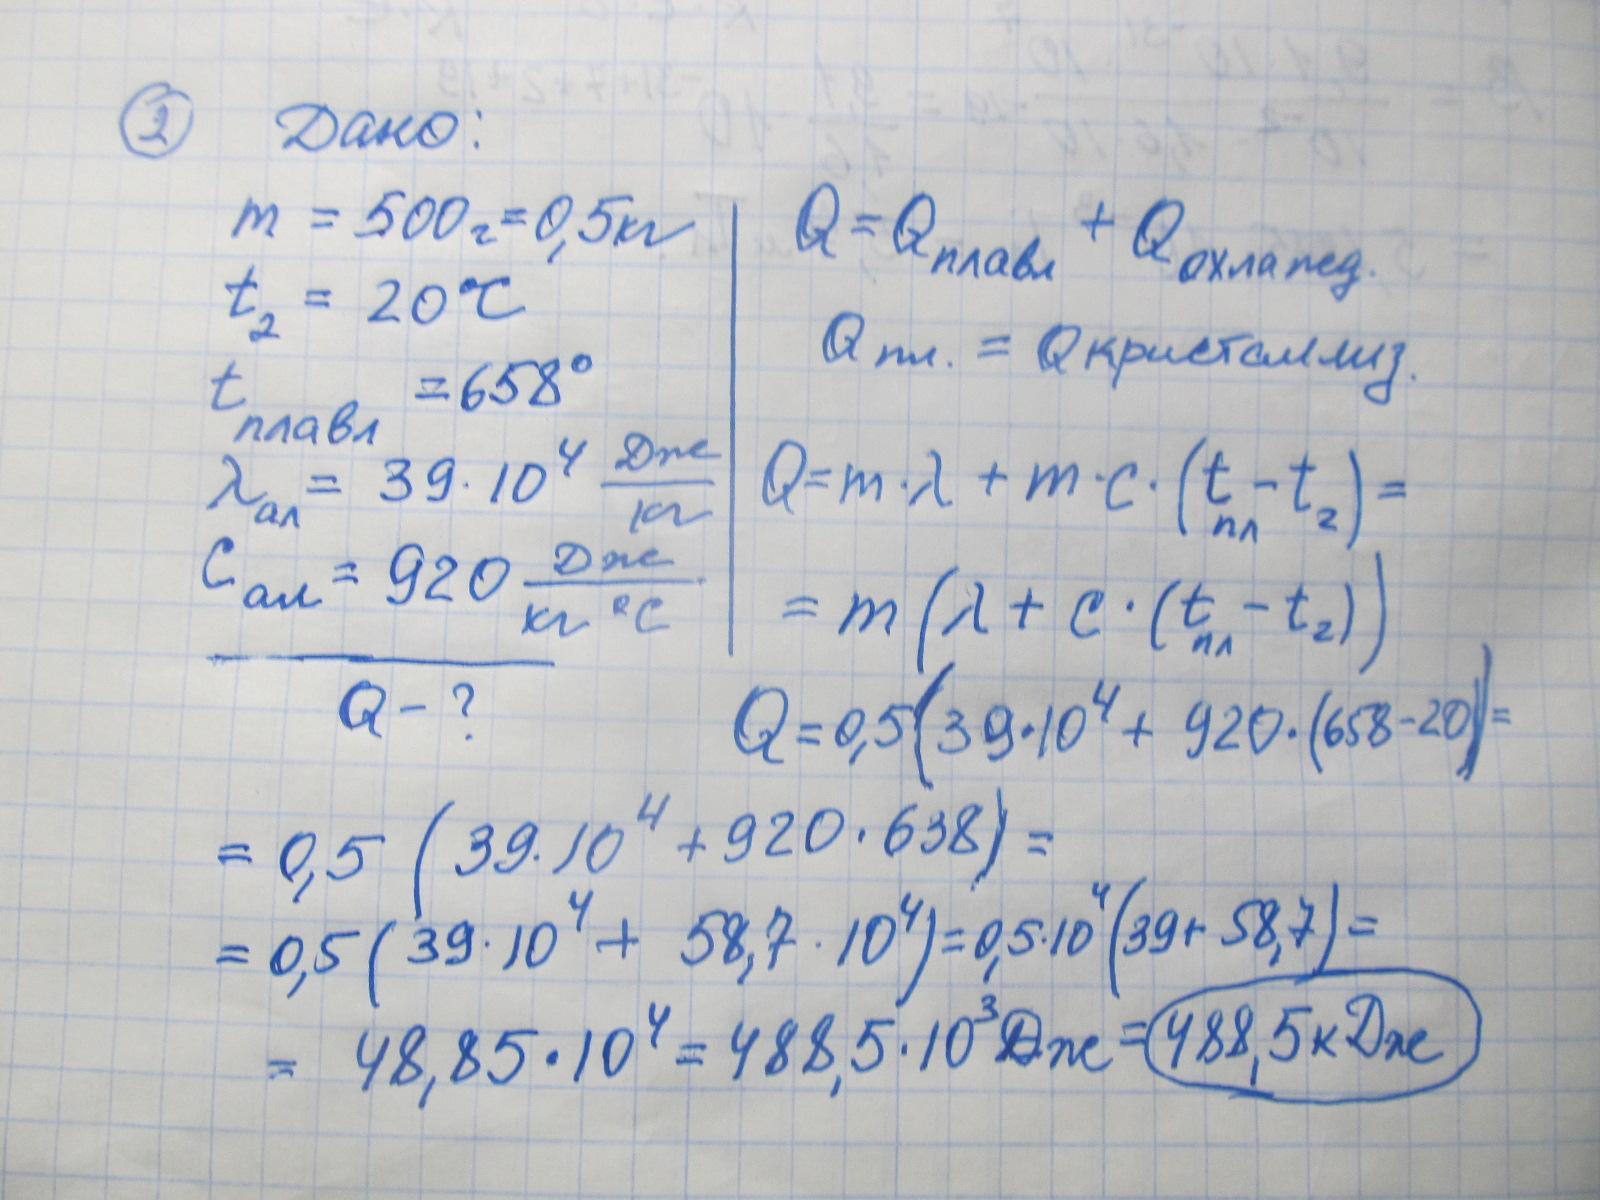 2 Дано:
m = 500г = 0,5кг
t₂ = 20°C
t плавл = 658°
λ ал = 39·10⁴ Дж/кг
C ал = 920 Дж/кг °C
Q - ?
Q = Q плавл + Q охлажд.
Q пл. = Q кристаллиз.
Q = m·λ + m·c·(t пл - t₂) =
= m(λ + c·(t пл - t₂))
Q = 0,5(39·10⁴ + 920·(658-20)) =
= 0,5 (39·10⁴ + 920·638) =
= 0,5(39·10⁴ + 58,7·10⁴) = 0,5·10⁴(39 + 58,7) =
= 48,85·10⁴ = 488,5·10³ Дж = 488,5кДж